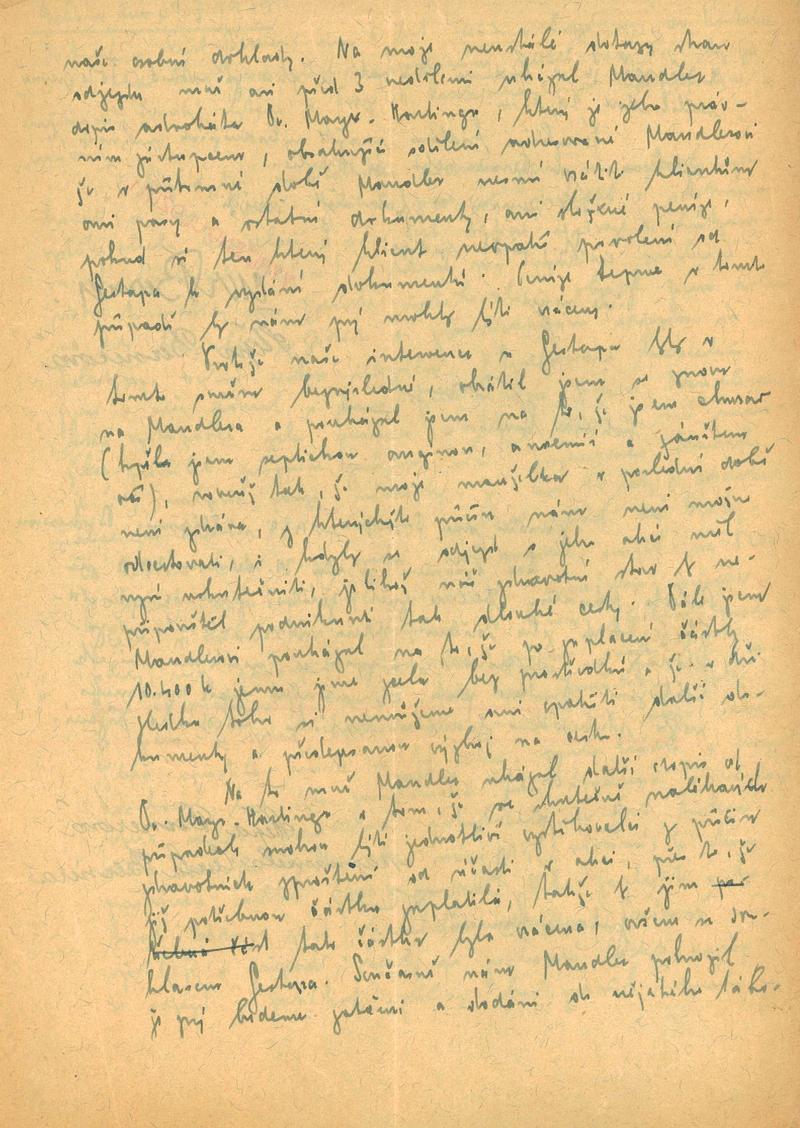 naše osobní doklady. Na moje neustálé dotazy stran
odjezdu mně asi před 3 nedělemi ukázal Mandler
dopis advokáta Dr. Mayr-Hartinga, který je jeho práv-
ním zástupcem, obsahující sdělení adresované Mandlerovi
že v přítomné době Mandler nesmí vrátit klientům
ani pasy a ostatní dokumenty, ani složené peníze,
pokud si ten který klient neopatří povolení od
Gestapa k vydání dokumentů. Peníze teprve v tomto
případě by nám prý mohly býti vráceny.
Protože naše intervence u Gestapa byly v
tomto směru bezvýsledné, obrátil jsem se znovu
na Mandlera a poukázal jsem na to, že jsem churav
(trpěl jsem septickou anginou, anemií a zánětem
očí), rovněž tak, že moje manželka v poslední době
není zdráva, z kterýchžto příčin nám není možno
odcestovati, i kdyby se odjezd s jeho akcí měl
nyní uskutečniti, jelikož náš zdravotní stav by ne-
připouštěl podniknutí tak dlouhé cesty. Dále jsem
Mandlerovi poukázal na to, že po zaplacení částky
10.400 K jsme zcela bez prostředků a že v dů-
sledku toho si nemůžeme ani opatřiti další do-
kumenty a předepsanou výzbroj na cestu.
Na to mně Mandler ukázal další dopis od
Dr. Mayr-Hartinga o tom, že ve skutečně naléhavých
případech mohou býti jednotliví vystěhovalci z příčin
zdravotních zproštěni od účasti v akci, přes to, že
již potřebnou částku zaplatili, takže by jim
tato částka byla vrácena, ovšem se sou-
hlasem Gestapa. Současně nám Mandler pohrozil
že prý budeme zatčeni a dodáni do nějakého tábo-